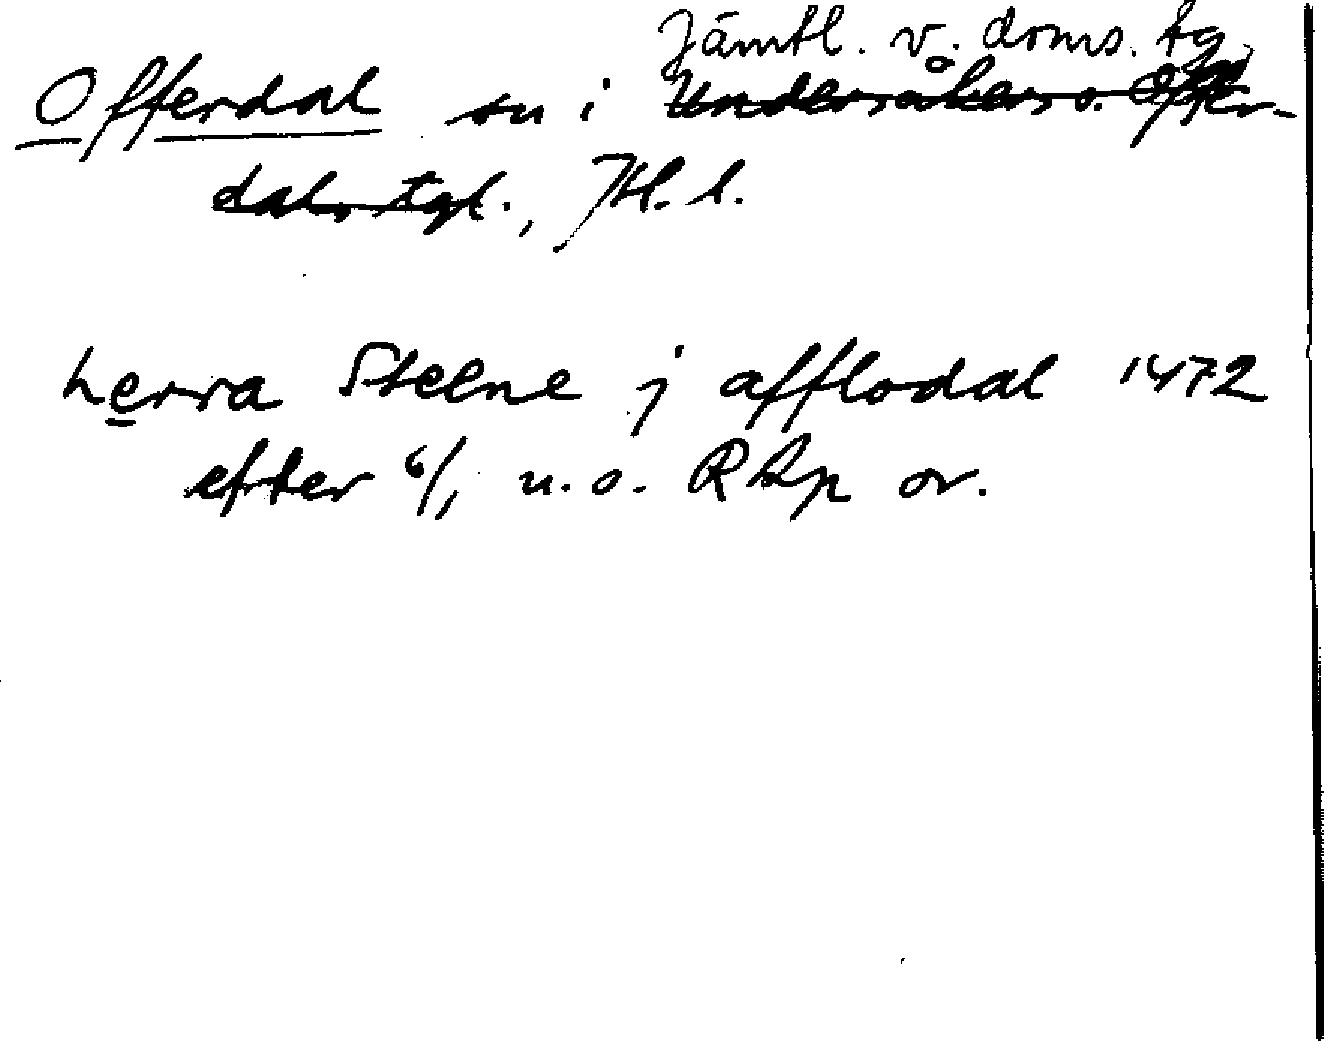 Jämtl. v. doms. tg
Offerdal sn i Undersåkers o. Offer-
dals tgl., Jtl. l.
herra Steene j afflodal 1472
efter 6/1 u.o. RAp or.